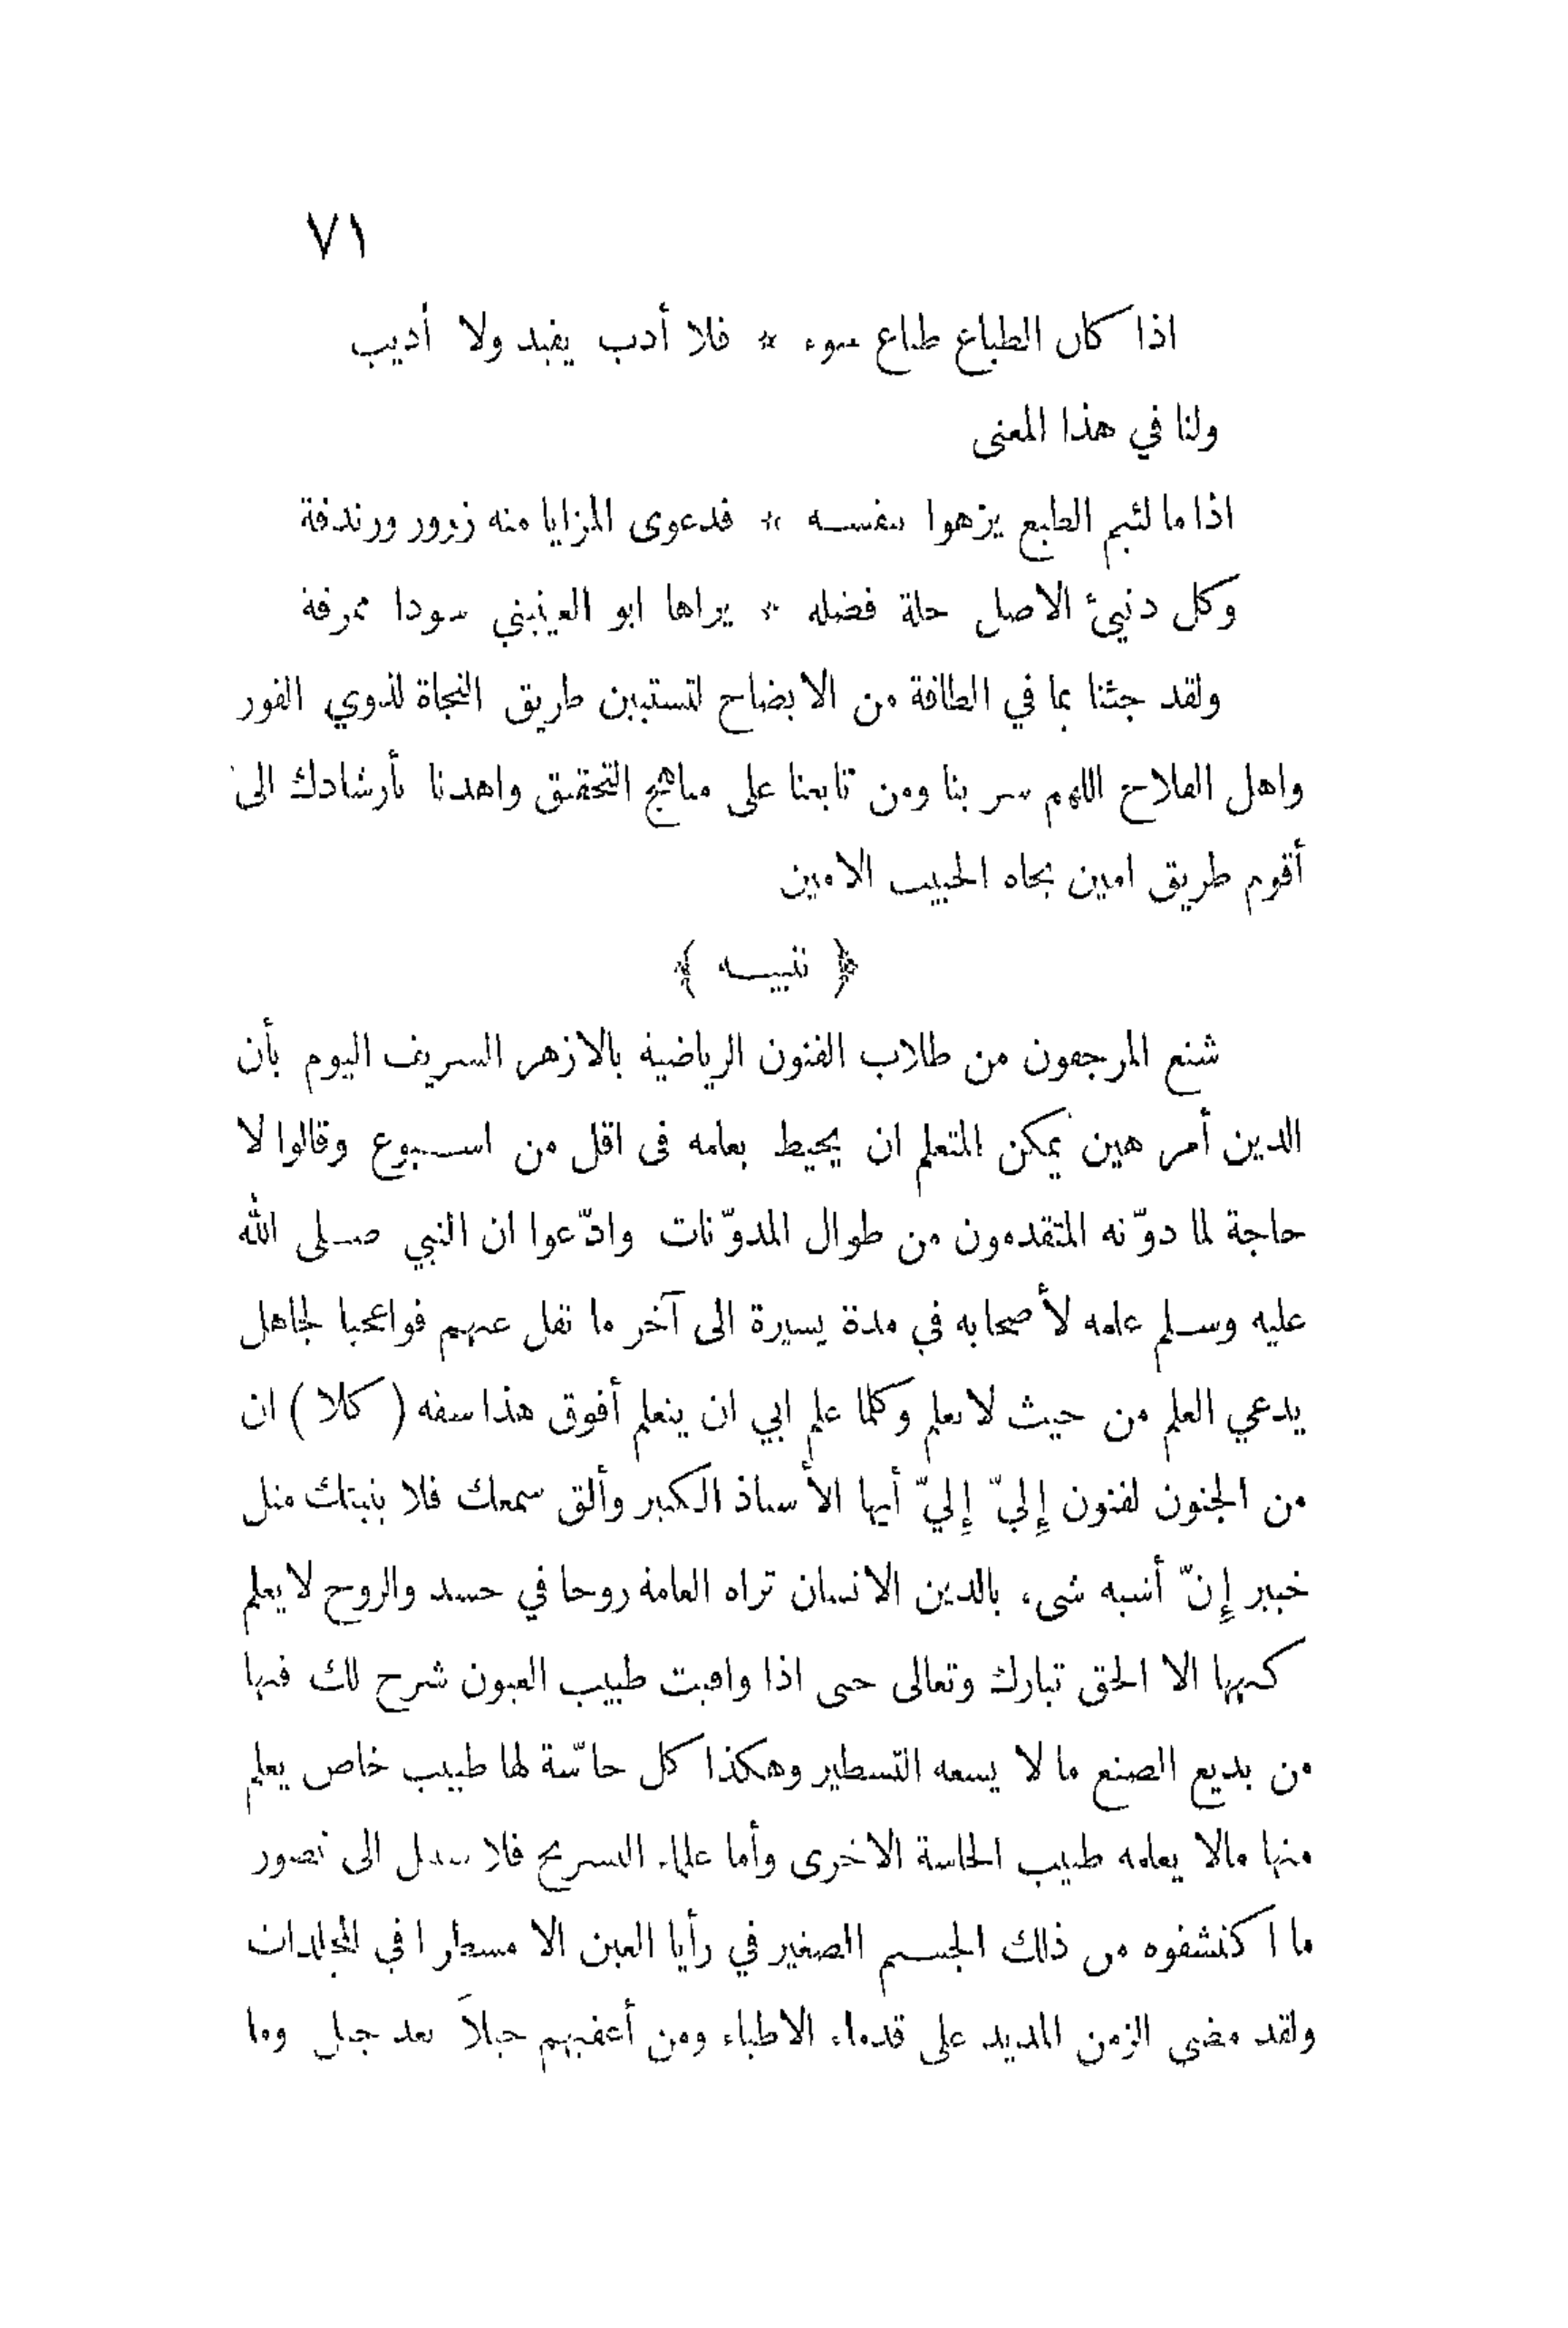 ٧١
اذا كان الطباع طباع سوء * فلا أدب يفيد ولا أديب
ولنا في هذا المعنى
اذا ما لئيم الطبع يزهوا بنفسه * فدعوى المزايا منه زور وزندقة
وكل دنيئ الاصل حلة فضله * يراها ابو العينين سودا ممزقة
ولقد جئنا بما في الطاقة من الايضاح لتستبين طريق النجاة لذوي الفوز
واهل الفلاح اللهم سر بنا ومن تابعنا على مناهج التحقيق واهدنا بأرشادك الى
أقوم طريق امين بجاه الحبيب الامين
﴿ تنبيه ﴾
شنع المرجفون من طلاب الفنون الرياضية بالازهر الشريف اليوم بأن
الدين أمر هين يمكن المتعلم ان يحيط بعلمه فى اقل من اسبوع وقالوا لا
حاجة لما دوّنه المتقدمون من طوال المدوّنات وادّعوا ان النبي صلى الله
عليه وسلم علمه لأصحابه في مدة يسيرة الى آخر ما نقل عنهم فواعجبا لجاهل
يدعي العلم من حيث لا يعلم وكلما علم ابي ان يتعلم أفوق هذا سفه ( كلا ) ان
من الجنون لفنون إليّ إليّ أيها الأستاذ الكبير وألق سمعك فلا ينبئك مثل
خبير إنّ أشبه شىء بالدين الانسان تراه العامة روحا في جسد والروح لا يعلم
كنهها الا الحق تبارك وتعالى حتى اذا وافيت طبيب العيون شرح لك فيها
من بديع الصنع ما لا يسعه التسطير وهكذا كل حاسّة لها طبيب خاص يعلم
منها مالا يعلمه طبيب الحاسة الاخرى وأما علماء التشريح فلا سبيل الى تصور
ما اكتشفوه من ذلك الجسم الصغير في رأيا العين الا مسطرا في المجلدات
ولقد مضى الزمن المديد على قدماء الاطباء ومن أعقبهم جيلاً بعد جيل وما